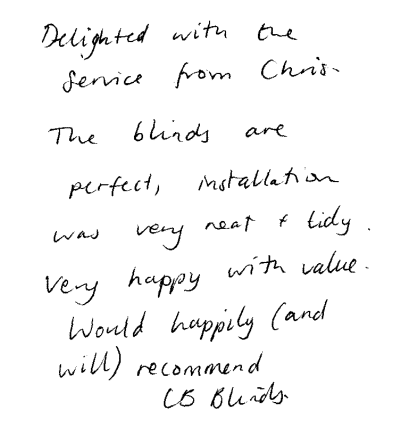 Delighted with the
service from Chris.
The blinds are
perfect, installation
was very neat + tidy.
Very happy with value.
Would happily (and
will) recommend
CB Blinds.